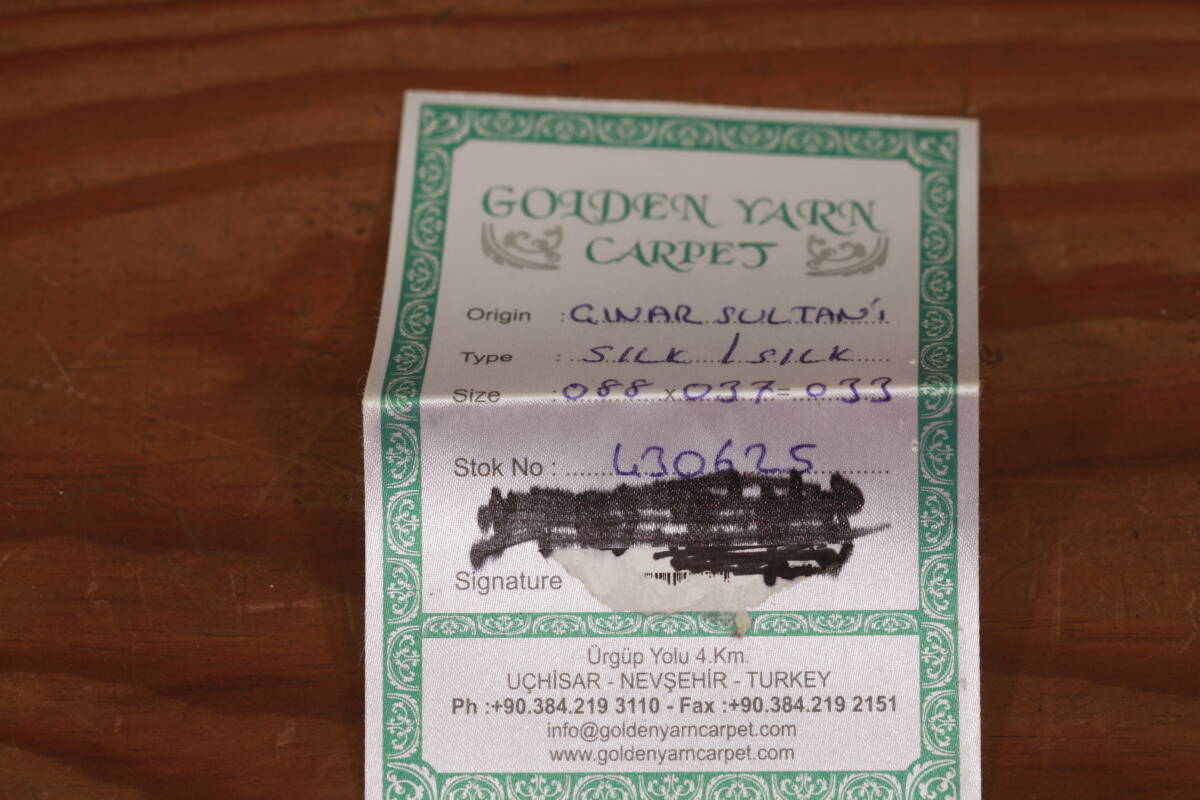 GOLDEN YARN
CARPET
Origin : ÇINAR SULTAN'ı
Type : SILK / SILK
Size : 088 x 037 = 033
Stok No : 430625
Signature
Ürgüp Yolu 4.Km.
UÇHİSAR - NEVŞEHİR - TURKEY
Ph :+90.384.219 3110 - Fax :+90.384.219 2151
info@goldenyarncarpet.com
www.goldenyarncarpet.com